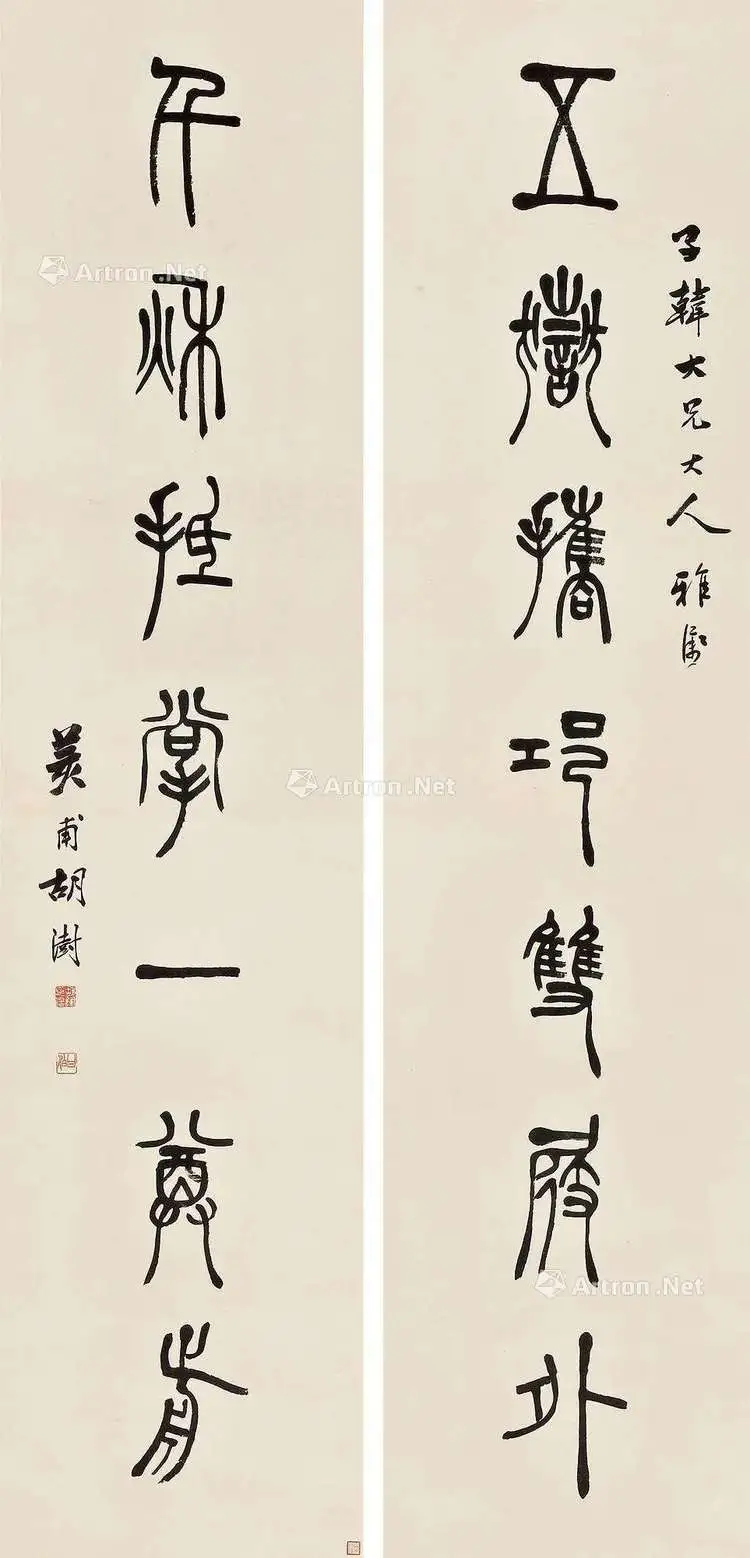 子韓大兄大人雅
五嶽攜邛雙屐外
千秋抵掌一尊前
荄甫胡澍
Artron.Net
Artron.Net
Artron.Net